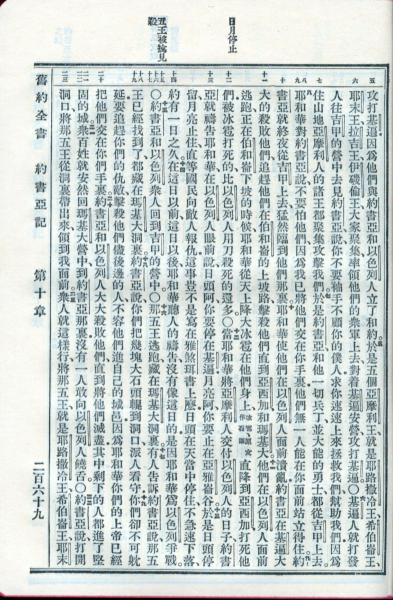 日月停止
五王被擒見殺
五
六
七
八
九
十
十一
十二
十三
十四
十五
十六
十七
十八
十九
二十
二一
二二
二三
攻打基遍因爲他們與約書亞和以色列人立了和約於是五個亞摩利王就是耶路撒冷王希伯崙王
耶末王拉吉王伊磯倫王大家聚集率領他們的衆軍上去對着基遍安營攻打基遍○基遍人就打發
人往吉甲的營中去見約書亞說你不要袖手不顧你的僕人求你速速上來拯救我們幫助我們因爲
住山地亞摩利人的諸王都聚集攻擊我們於是約書亞和他一切兵丁並大能的勇士都從吉甲上去
耶和華對約書亞說不要怕他們因爲我已將他們交在你手裏他們無一人能在你面前站立得住約
書亞就終夜從吉甲上去猛然臨到他們那裏耶和華使他們在以色列人面前潰亂約書亞在基遍大
大的殺敗他們追趕他們在伯和崙的上坡路擊殺他們直到亞西加和瑪基大他們在以色列人面前
逃跑正在伯和崙下坡的時候耶和華從天上降大冰雹在他們身上冰雹原文作石頭直降到亞西加打死他
們被冰雹打死的比以色列人用刀殺死的還多○當耶和華將亞摩利人交付以色列人的日子約書
亞就禱告耶和華在以色列人眼前說日頭阿你要停在基遍月亮阿你要止在亞雅崙谷於是日頭停
留月亮止住直等國民向敵人報仇這事豈不是寫在雅煞珥書上麼日頭在天當中停住不急速下落
約有一日之久在這日以前這日以後耶和華聽人的禱告沒有像這日的是因耶和華爲以色列爭戰
○約書亞和以色列衆人回到吉甲的營中○那五王逃跑藏在瑪基大洞裏有人告訴約書亞說那五
王已經找到了都藏在瑪基大洞裏約書亞說你們把幾塊大石頭輥到洞口派人看守你們卻不可躭
延要追趕你們的仇敵擊殺他們儘後邊的人不容他們進自己的城邑因爲耶和華你們的上帝已經
把他們交在你們手裏約書亞和以色列人大大殺敗他們直到將他們滅盡其中剩下的人都進了堅
固的城衆百姓就安然回瑪基大營中到約書亞那裏沒有一人敢向以色列人饒舌○約書亞說打開
洞口將那五王從洞裏帶出來領到我面前衆人就這樣行將那五王就是耶路撒冷王希伯崙王耶末
舊約全書 約書亞記 第十章 二百六十九